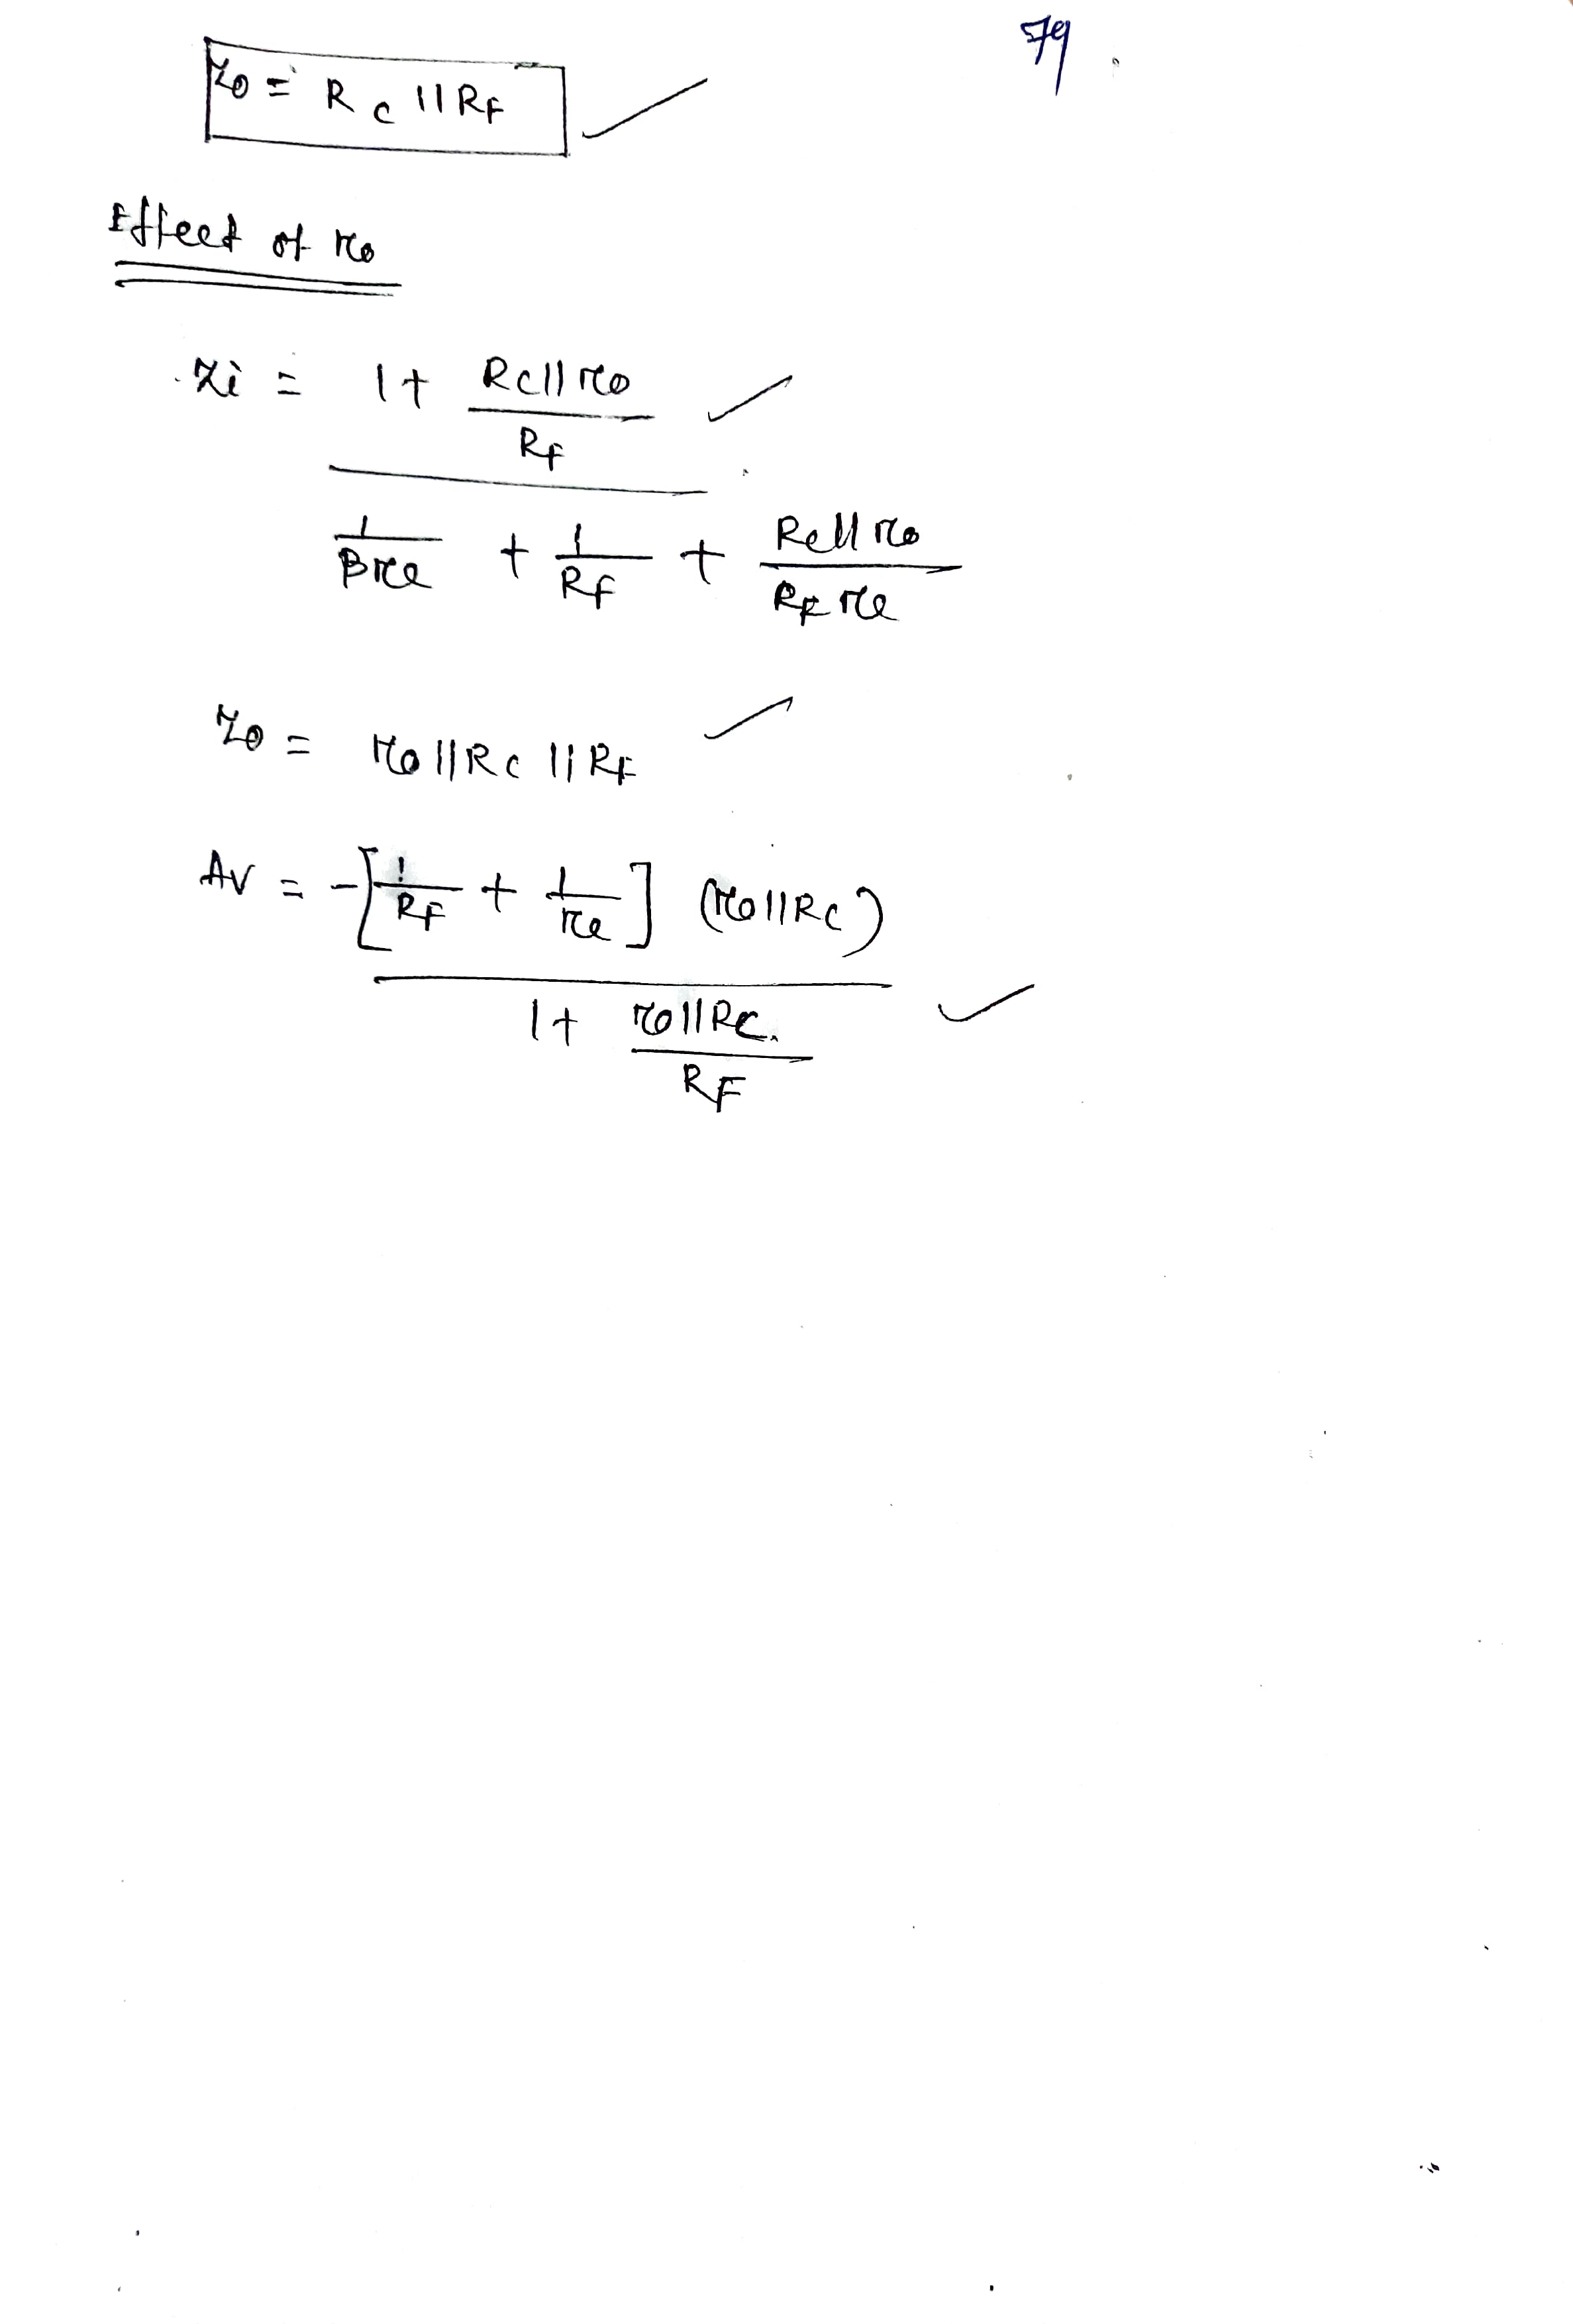 79
Zo = RC || RF
Effect of ro
Zi = 1 + RC || ro / RF
1/βre + 1/RF + RC || ro / RF re
Zo = ro || RC || RF
Av = -[1/RF + 1/re] (ro || RC)
1 + ro || RC / RF